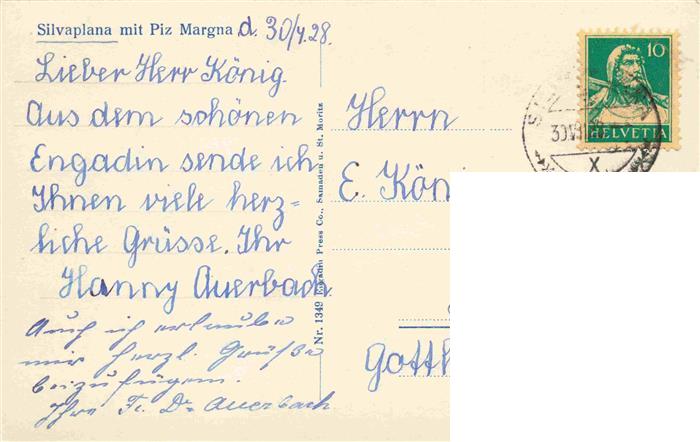 Silvaplana mit Piz Margna d. 30/7.28.
Lieber Herr König.
Aus dem schönen
Engadin sende ich
Ihnen viele herz=
liche Grüsse. Ihr
Hanny Auerbach
Auch ich erlaube
mir herzl. Grüße
beizufügen.
Ihre Fr. Dr. Auerbach
Nr. 1349 Engadin Press Co., Samaden u. St. Moritz
Herrn
E. Köni
Gotth
10
HELVETIA
X